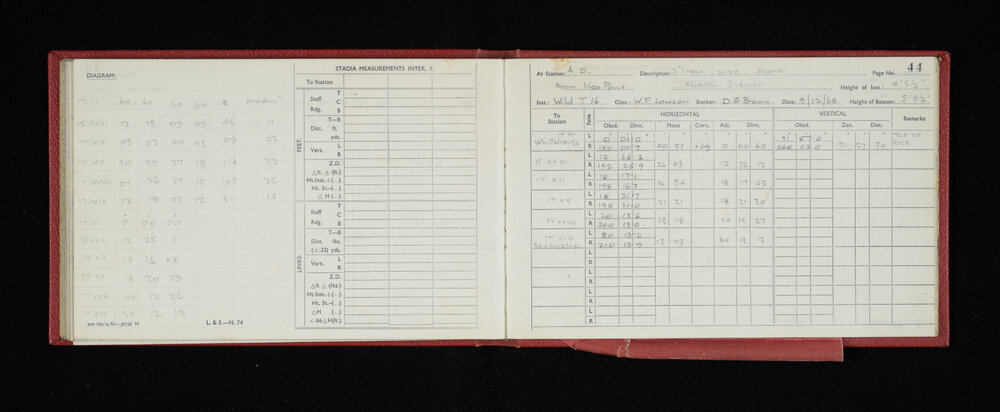 DIAGRAM:
STADIA MEASUREMENTS INTER. I:
To Station
FEET.
Staff T
Rdg. C
B
T—B
Dist. ft.
yds.
Vert. L
R
Z.D.
△h ± (ft.)
Ht.Inst.+(..)
Ht. St.–(..)
△H (..)
LINKS.
Staff T
Rdg. C
B
T—B
Dist. lks.
(×.22) yds.
Vert. L
R
Z.D.
△h ± (lks.)
Ht.Inst.+(..)
Ht. St.–(..)
△H (..)
×.66△H(ft.)
60 60 60 60 Σ mean
12 15 09 09 45 11
IT XII 03 03 00 03 09 02
30 29 27 18
27 36 27 15 105 26
IT XIV 12 18 09 12 51 13
IT III 0 00 00
12 25 11
IT XII 18 16 02
18 20 29
20 12 26
30 12 12
L. & S.—N. 74
44
At Station: 4 S. Description: 2" iron pipe Page No.
Near 1500 Point Mueller Glacier Height of Inst.: 4' 5½"
Inst.: Wild T16 Obsr: W.F. Lawson Booker: D E Brown Date: 9/12/68 Height of Beacon: 5' 8½"
To Station Face HORIZONTAL VERTICAL Remarks
Obsd. Dirn. Mean Corn. Adj. Dirn. Obsd. Zen. Dist.
IT III L 0 01.0 91 57.0 TOP OF
R 180 00.7 00 51 +09 0 00 60 268 02.0 91 57 30 POLE
IS XXIII L 12 26.2
R 192 25.9 26 03 12 26 12
IT XII L 18 17.1
R 198 16.7 16 54 18 17 03
L 18 21.7
R 198 21.0 21 21 18 21 30
L 20 13.6
R 200 13.0 13 18 20 13 27
IT XIV L 30 13.2
Sebastopol R 210 12.9 13 03 30 13 12
L
R
L
R
L
R
L
R